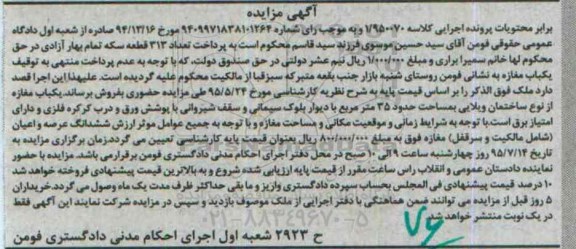 آگهی مزایده
برابر محتویات پرونده اجرایی کلاسه ۱/۹۵۰۰۷۰ و به موجب رای شماره ۹۴۰۹۹۷۱۸۳۸۱۰۱۲۶۴ مورخ ۹۴/۱۲/۱۶ صادره از شعبه اول دادگاه
عمومی حقوقی فومن آقای سید حسین موسوی فرزند سید قاسم محکوم است به پرداخت تعداد ۳۱۳ قطعه سکه تمام بهار آزادی در حق
محکوم لها خانم سمیرا براری و مبلغ ۱/۰۰۰/۰۰۰ ریال نیم عشر دولتی در حق صندوق دولت، که با توجه به عدم پرداخت منتهی به توقیف
یکباب مغازه به نشانی فومن روستای شنبه بازار جنب بقعه متبرکه سبزقبا از مالکیت محکوم علیه گردیده است. علیهذا این اجرا قصد
دارد ملک فوق الذکر را بر اساس قیمت پایه به شرح نظریه کارشناسی مورخ ۹۵/۵/۲۴ طی مزایده حضوری بفروش برساند. یکباب مغازه
از نوع ساختمان ویلایی بمساحت حدود ۳۵ متر مربع با دیوار بلوک سیمانی و سقف شیروانی با پوشش ورق و درب کرکره فلزی و دارای
امتیاز برق است. با توجه به شرایط زمانی و موقعیت مکانی و مساحت مغازه و با توجه به جمیع عوامل موثر ارزش ششدانگ عرصه و اعیان
(شامل مالکیت و سرقفلی) مغازه فوق به مبلغ ریال بعنوان قیمت پایه کارشناسی تعیین می گردد. زمان برگزاری مزایده به
تاریخ ۹۵/۷/۱۴ روز چهارشنبه ساعت ۹ الی ۱۰ صبح در محل دفتر اجرای احکام مدنی دادگستری فومن برقرار می باشد. مزایده با حضور
نماینده دادستان عمومی و انقلاب راس ساعت مقرر از قیمت پایه ارزیابی شده شروع و به بالاترین قیمت پیشنهادی فروخته خواهد شد
۱۰ درصد قیمت پیشنهادی فی المجلس بحساب سپرده دادگستری واریز و ما بقی حداکثر ظرف مدت یک ماه وصول می گردد. خریداران
۵ روز قبل از مزایده می توانند ضمن هماهنگی با دفتر اجرایی از ملک موصوف بازدید و سپس در مزایده شرکت نمایند این آگهی فقط
در یک نوبت منتشر خواهد شد.
۰۲۱-۸۸۳۴۹۶۷۰-۵
ح ۲۹۲۳ شعبه اول اجرای احکام مدنی دادگستری فومن